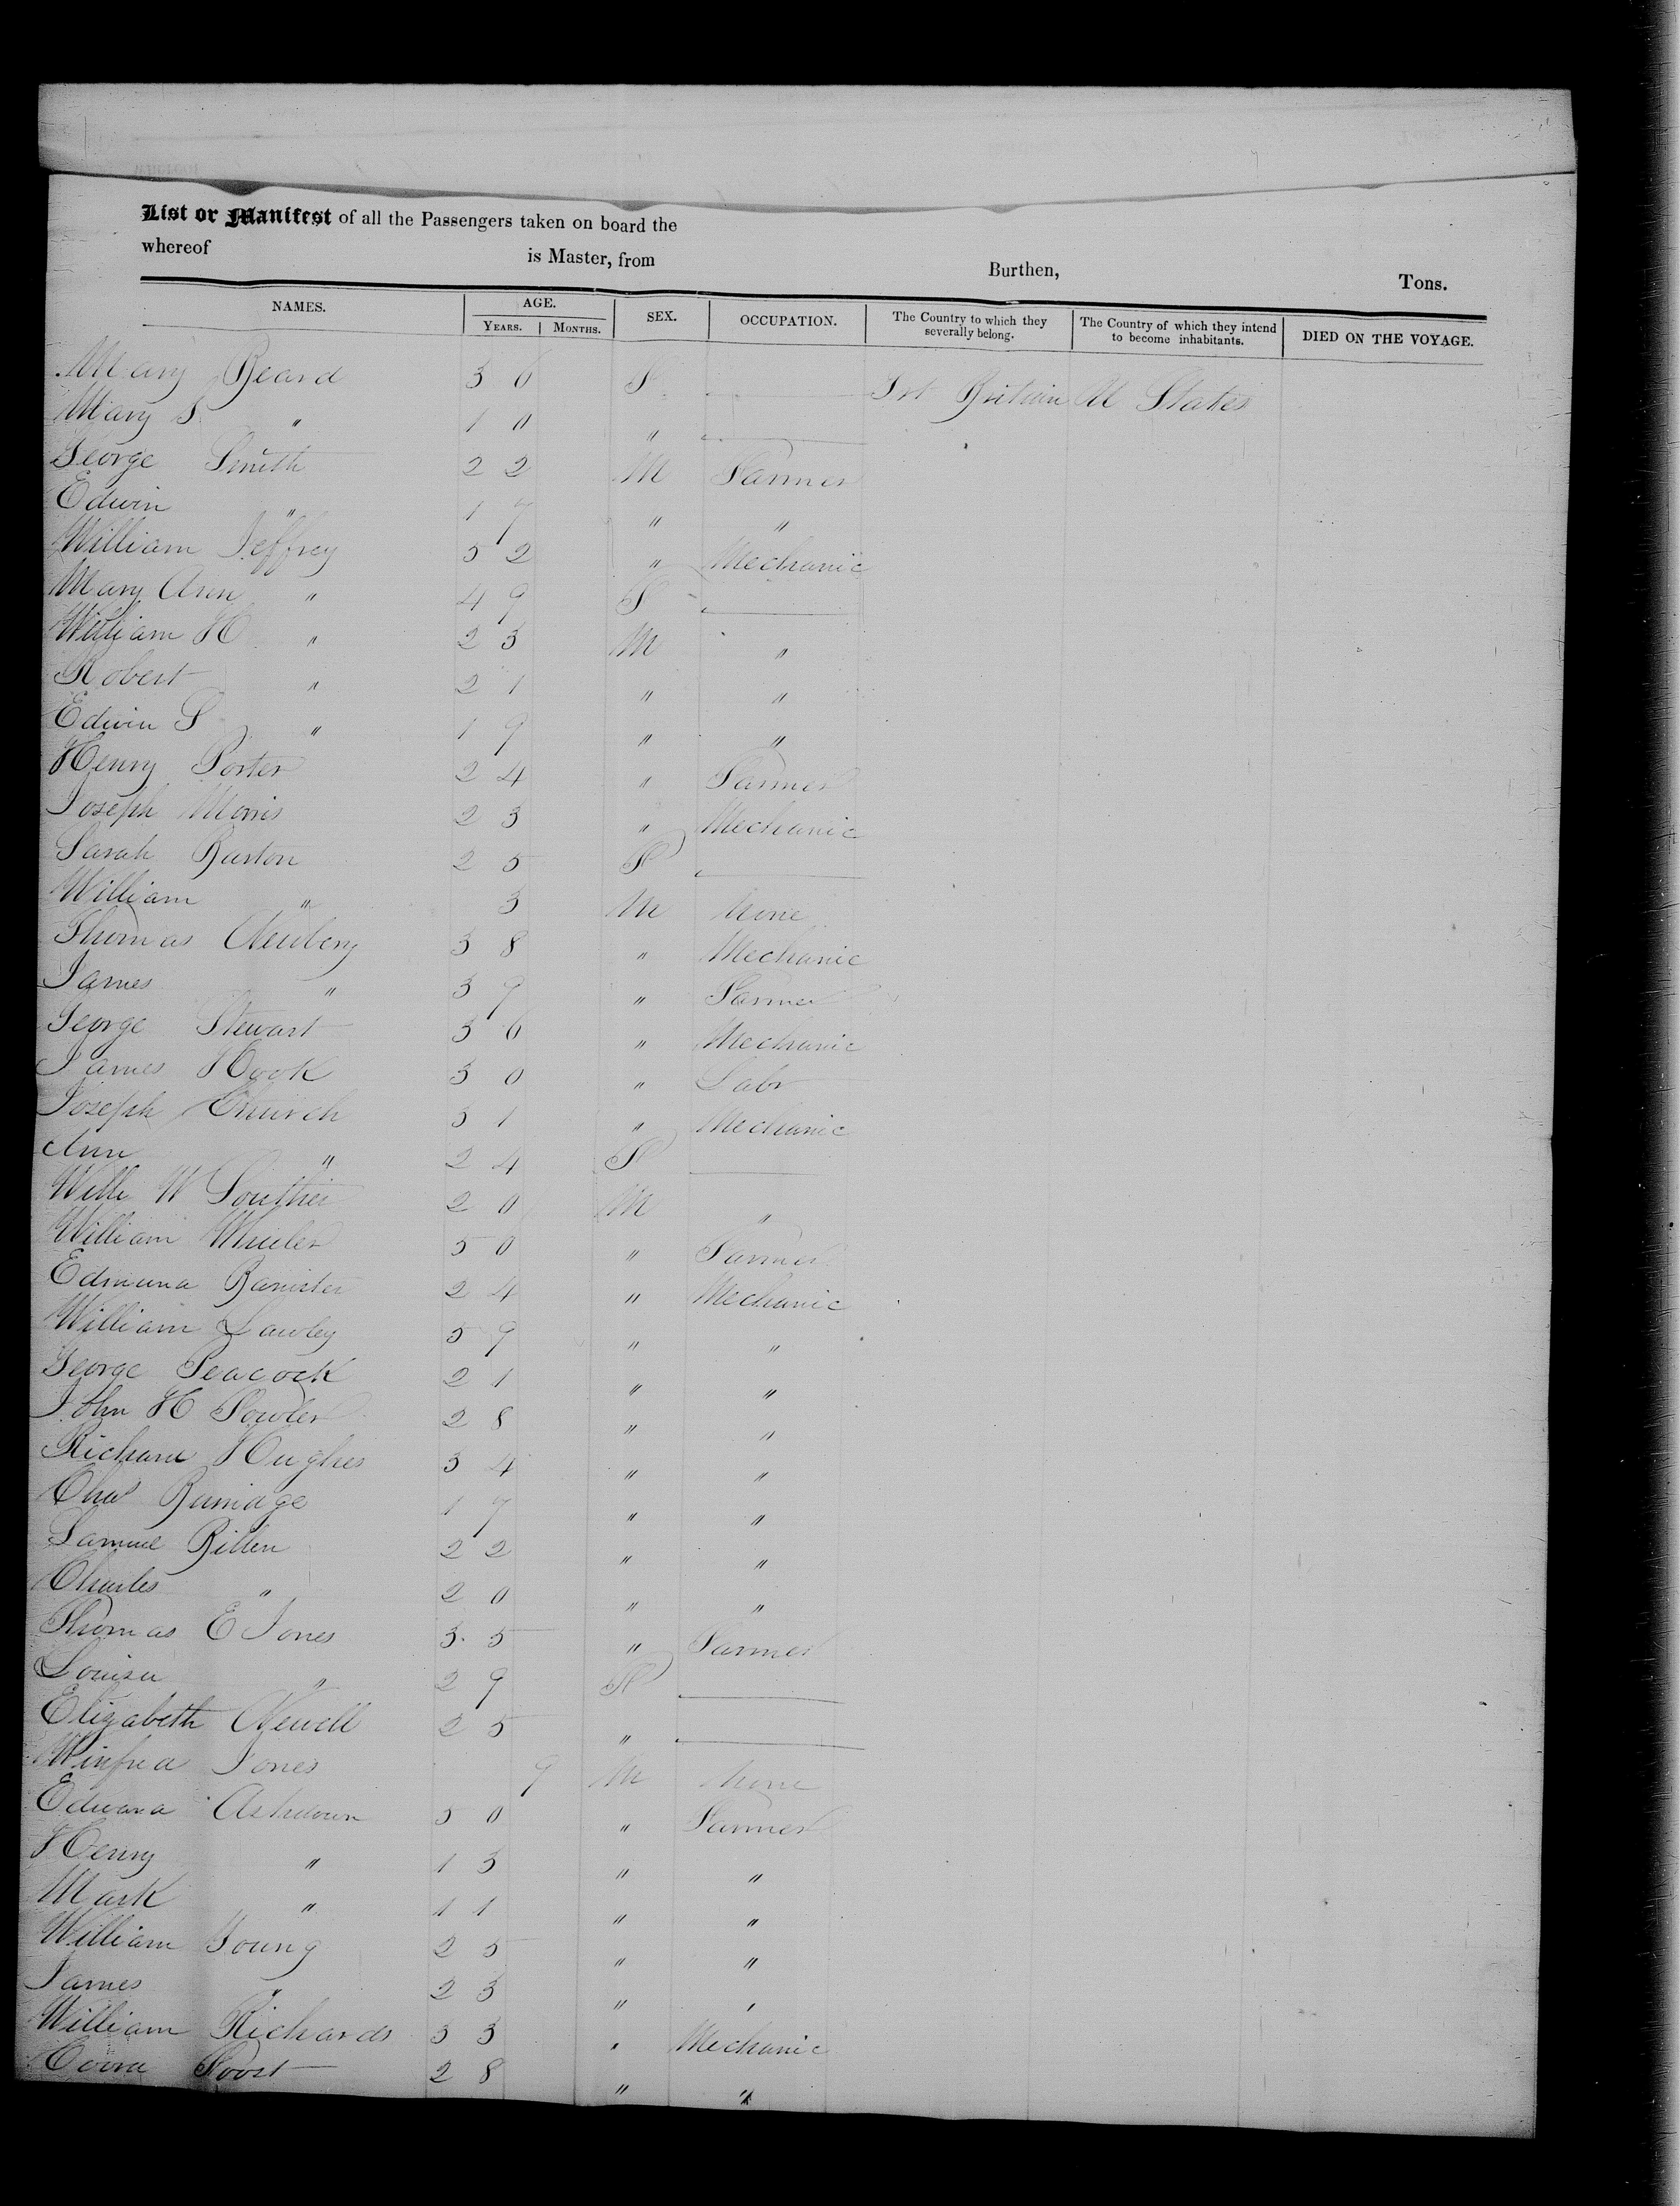 List or Manifest of all the Passengers taken on board the
whereof is Master, from Burthen, Tons.
NAMES. AGE. YEARS. MONTHS. SEX. OCCUPATION. The Country to which they severally belong. The Country of which they intend to become inhabitants. DIED ON THE VOYAGE.
Mary Beard 30 F — Grt Britian U States
Mary F " 10 " —
George Smith 22 M Farmer
Edwin " 17 " "
William Jeffrey 52 " Mechanic
Mary Ann " 49 F —
William H " 23 M "
Robert " 21 " "
Edwin S " 19 " "
Henry Porter 24 " Farmer
Joseph Morris 23 " Mechanic
Sarah Barton 25 F —
William " 3 M None
Thomas Newbery 38 " Mechanic
James " 39 " Farmer
George Stewart 30 " Mechanic
James Hook 30 " Labr
Joseph Church 31 " Mechanic
Ann " 24 F —
Willi W 20 M "
William Wheeler 50 " Farmer
Edmund Banister 24 " Mechanic
William Lawley 59 " "
George Peacock 21 " "
John H Fowler 28 " "
Richard Hughes 34 " "
Chas 17 " "
Samuel 22 " "
Charles " 20 " "
Thomas E Jones 35 " Farmer
Louisa " 29 F —
Elizabeth Newell 25 " —
Winfred Jones 9 M None
Edward Ashdown 50 " Farmer
Henry " 13 " "
Mark " 11 " "
William Young 25 " "
James " 23 " "
William Richards 33 " Mechanic
28 " "